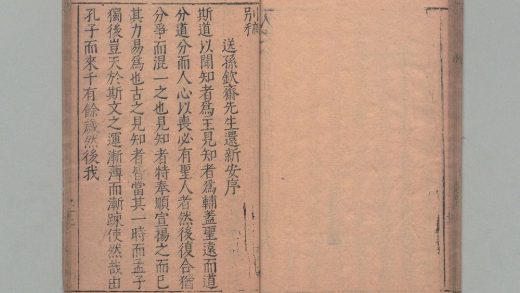 別稿
送孫欽齋先生還新安序
斯道以聞知者為王見知者為輔蓋聖遠而道
分道分而人心以喪必有聖人者然後復合猶
分爭而混一之也見知者特奉順宣揚之而已
其力易為也古之見知者皆當其一時而孟子
獨後豈天於斯文之運漸薄而漸踈使然哉由
孔子而來千有餘歲然後我